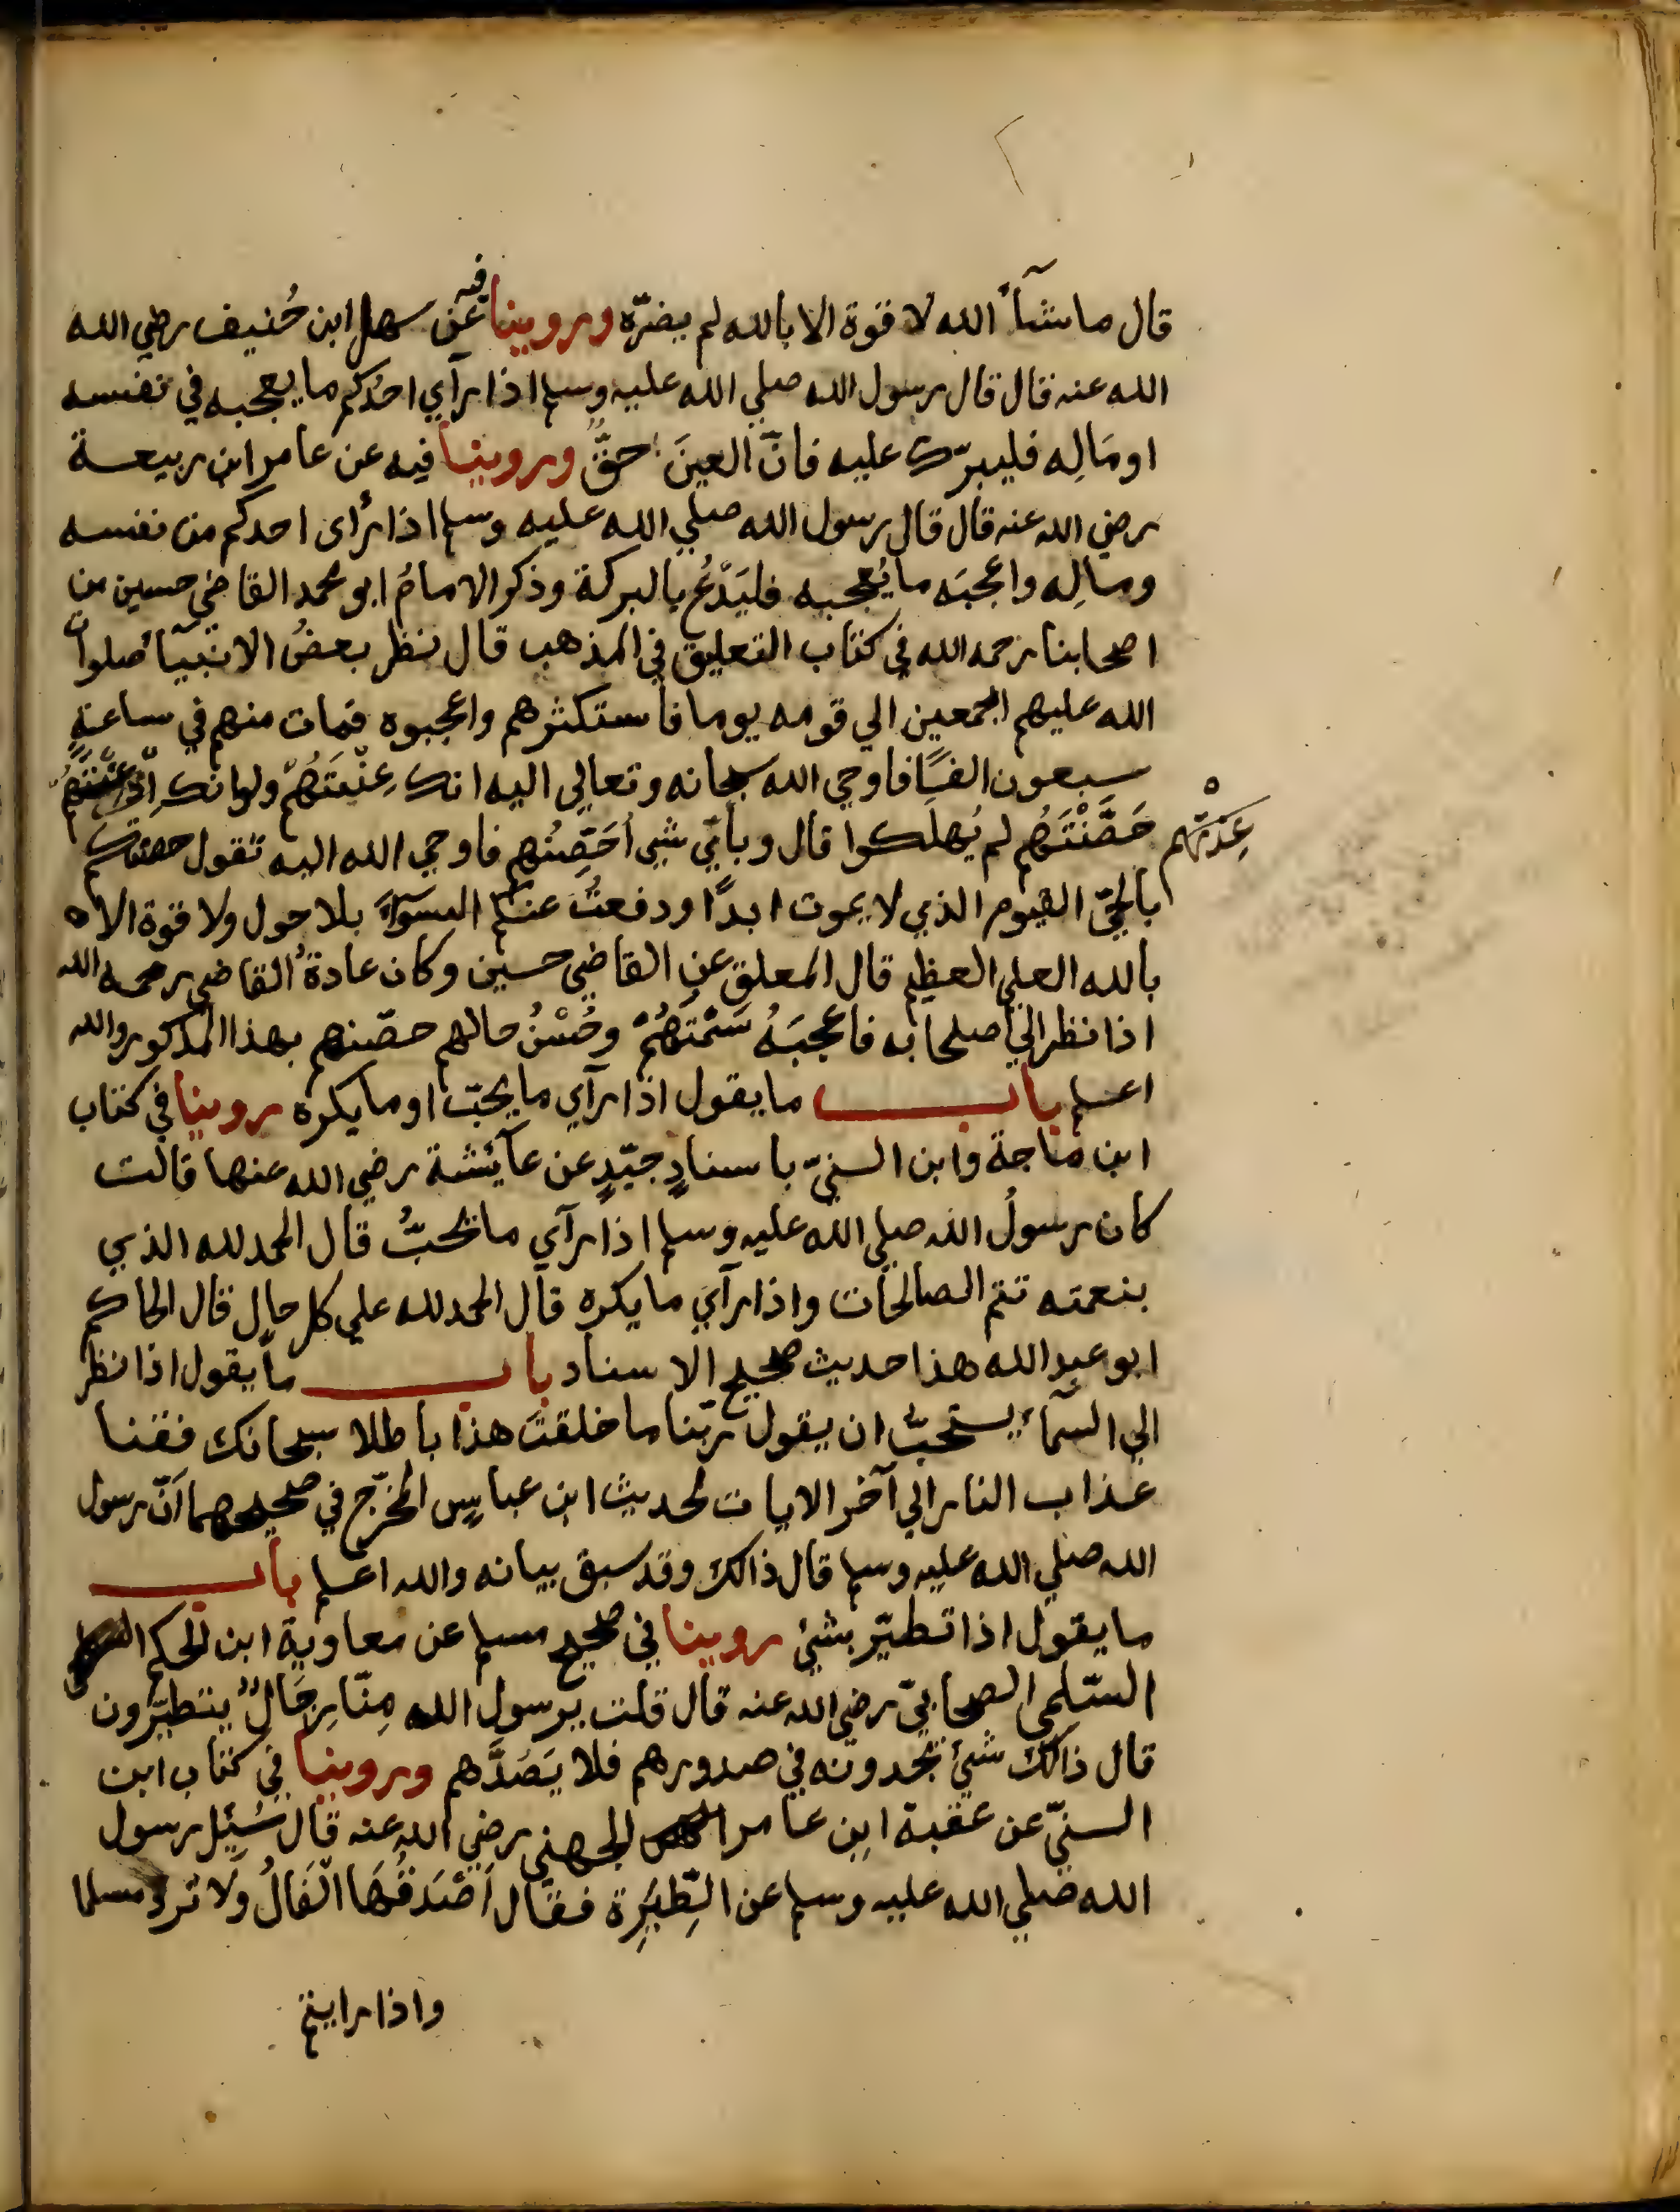 قال ماشآءَ الله لا قوة الا بالله لم يضرّه وروينا فيه عن سهل ابن حُنيف رضي الله
الله عنه قال قال رسول الله صلي الله عليه وسلم اذا رآي احدكم ما يعجبه في نفسه
او مَالِه فليبرّك عليه فانّ العينَ حقٌّ وروينا فيه عن عامر ابن ربيعة
رضي الله عنه قال قال رسول الله صلي الله عليه وسلم اذا رأى احدكم من نفسه
ومالِه واعجبَه ما يُعجبه فليَدْعُ بالبركة وذكر الامامُ ابو محمد القاضي حسين من
اصحابنا رحمه الله في كتاب التعليق في المذهب قال نظر بعضُ الانبيآء صلوات
الله عليهم اجمعين الي قومه يوما فاستكثرهم واعجبوه فمات منهم في ساعةٍ
سبعون الفًا فاوحي الله سبحانه وتعالي اليه انك عِنْتَهُم ولو انك اذ
عِنْتَهم
حَصَّنْتَهُم لم يُهلَكوا قال وبأيّ شيى اُحَصِّنُهم فاوحي الله اليه تقول حصنتكم
بالحيّ القيوم الذي لا يموت ابدًا ودفعتُ عنكم السوٓءَ بلا حول ولا قوة الا
بالله العلي العظيم قال المعلق عن القاضي حسين وكان عادةُ القاضي رحمه الله
اذا نظر الي اصحابه فاعجبَهُ سَمْتَهُمْ وحُسْنُ حالهم حصّنهم بهذا المذكور والله
اعلم باب ما يقول اذا رآي ما يحبّ او ما يكره روينا في كتاب
ابن ماجة وابن السنيّ باسنادٍ جيّدٍ عن عآئشة رضي الله عنها قالت
كان رسولُ الله صلي الله عليه وسلم اذا رآي ما يحبُّ قال الحمد لله الذي
بنعمته تتم الصالحات واذا رآي ما يكره قال الحمد لله علي كل حال قال الحاكم
ابو عبد الله هذا حديث صحيح الاسناد باب ما يقول اذا نظر
الي السمآء يستحبّ ان يقول ربّنا ما خلقتَ هذا باطلا سبحانك فقنا
عذاب النار الي آخر الايات لحديث ابن عباسٍ المخرّج في صحيحهما اَنّ رسول
الله صلي الله عليه وسلم قال ذالك وقد سبق بيانه والله اعلم باب
ما يقول اذا تطيّر بشئ روينا في صحيح مسلم عن معاوية ابن الحكم
السّلمي الصحابيّ رضي الله عنه قال قلت يرسول الله مِنّا رِجَالٌ يتطيّرون
قال ذالك شيئ يجدونه في صدورهم فلا يَصُدَّهم وروينا في كتاب ابن
السنيّ عن عقبة ابن عامر الجهني رضي الله عنه قال سُئِل رسول
الله صلي الله عليه وسلم عن الطِّيَرِة فقال اَصْدَقُهَا الْفَالُ وَلا ترد مسلما
واذا رايتم